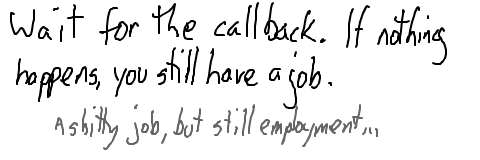 Wait for the callback. If nothing
happens, you still have a job.
A shitty job, but still employment...